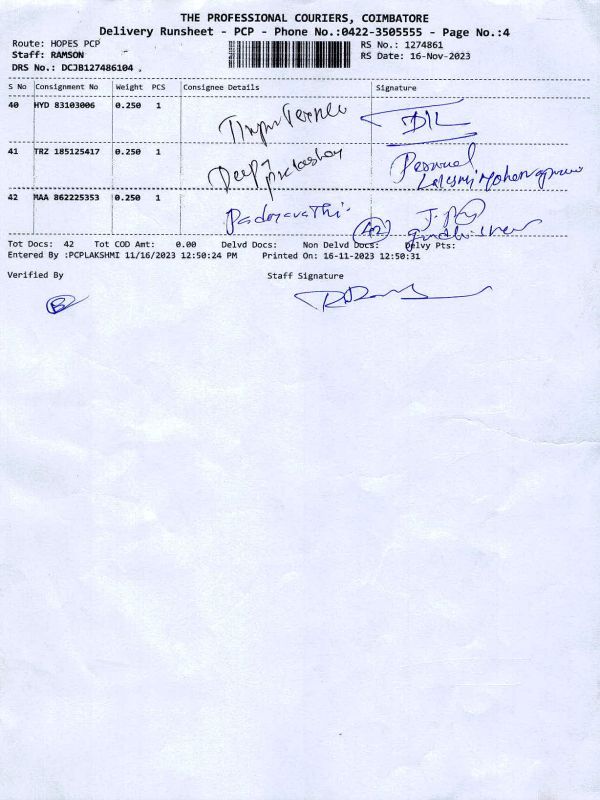 THE PROFESSIONAL COURIERS, COIMBATORE
Delivery Runsheet - PCP - Phone No.:0422-3505555 - Page No.:4
Route: HOPES PCP
RS No.: 1274861
Staff: RAMSON
RS Date: 16-Nov-2023
DRS No.: DCJB127486104
S No Consignment No Weight PCS Consignee Details Signature
40 HYD 83103006 0.250 1
41 TRZ 185125417 0.250 1
42 MAA 862225353 0.250 1 Padmavathi.
42
Tot Docs: 42 Tot COD Amt: 0.00 Delvd Docs: Non Delvd Docs: Delvy Pts:
Entered By :PCPLAKSHMI 11/16/2023 12:50:24 PM Printed On: 16-11-2023 12:50:31
Verified By Staff Signature